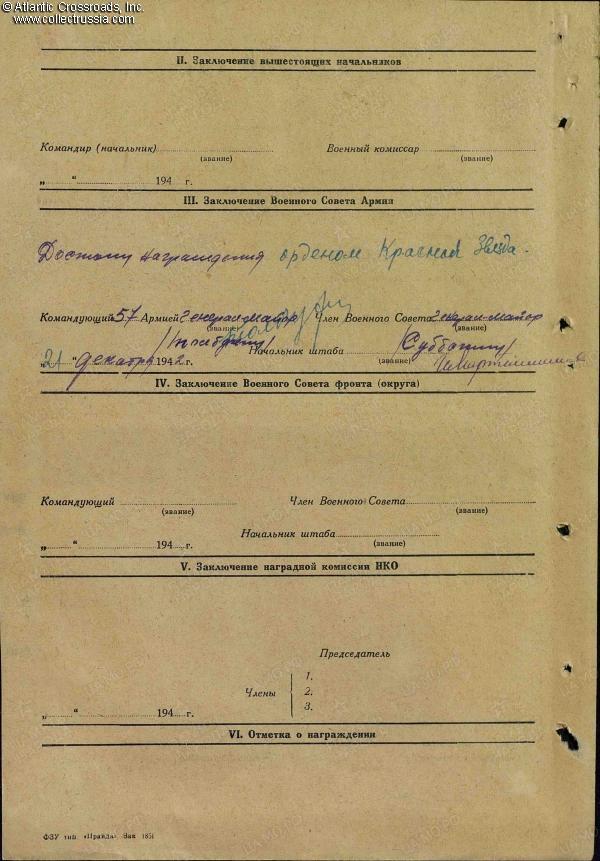 © Atlantic Crossroads, Inc.
www.collectrussia.com
II. Заключение вышестоящих начальников
Командир (начальник) Военный комиссар
(звание) (звание)
„ “ 194 г.
III. Заключение Военного Совета Армии
Достоин награждения орденом Красной Звезда.
Командующий 57 Армией генерал-майор Член Военного Совета генерал-майор
(звание) (звание)
/Толбухин/ /Субботин/
„21“ декабря 1942 г. Начальник штаба
(звание)
IV. Заключение Военного Совета фронта (округа)
Командующий Член Военного Совета
(звание) (звание)
Начальник штаба
„ “ 194 г. (звание)
V. Заключение наградной комиссии НКО
Председатель
1.
Члены 2.
3.
„ “ 194 г.
VI. Отметка о награждении
ФЗУ тип. «Правда» Зак 1851